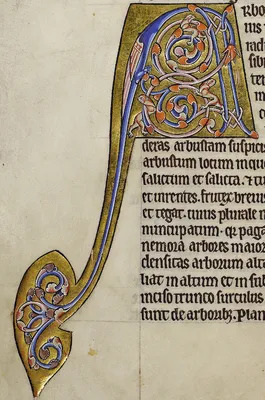 Arbo
ius
radi
sibi
ter
m
c
deras arbustam suspici
arbustum locum inquo
salictum et salicta. & tu
et uirentes. frutex breuis
et tegat. cuius plurale n
nuncupatum. qr paga
nemora arbores maior
densitas arborum alta
liat in altum et in sub
inciso trunco surculus
sunt de arborib; Plan